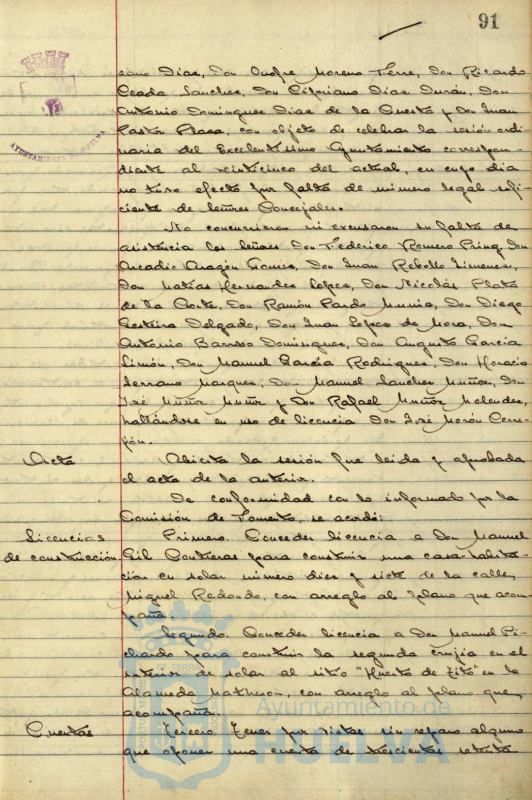 91
AYUNTAMIENTO DE HUELVA
Dias, Don Onofre Moreno Terre, Don Ricardo
Ceada Sanches, Don Cipriano Dias Durán, Don
Antonio Dominguez Dias de la Cuesta y Don Juan
Pastor Plaza, con objeto de celebrar la sesión ordi-
naria del Excelentísimo Ayuntamiento correspon-
diente al veinticinco del actual, en cuyo dia
no tuvo efecto por falta de número legal sufi-
ciente de señores Concejales.
No concurrieron ni excusaron su falta de
asistencia los señores Don Federico Romero Don
Arcadio Aragón Gomez, Don Juan Rebollo Jimenez,
Don Matías Hernandez Lopez, Don Nicolás Plata
de la Corte, Don Ramón Pardo Don Diego
Delgado, Don Juan Lopez de Mora, Don
Antonio Barroso Dominguez, Don Augusto Garcia
Simón, Don Manuel Garcia Rodriguez, Don Horacio
Serrano Marquez, Don Manuel Sanchez Muñoz, Don
José Muñiz Muñiz y Don Rafael Muñoz Melendez,
hallándose en uso de licencia Don José Morón Cere-
jón.
Acta Abierta la sesión fue leida y aprobada
el acta de la anterior.
De conformidad con lo informado por la
Comisión de Fomento, se acordó:
Licencias Primero. Conceder licencia a Don Manuel
de construcción. Gil Contreras para construir una casa-habita-
ción en solar número diez y siete de la calle,
Miguel Redondo, con arreglo al plano que acom-
paña.
Segundo. Conceder licencia a Don Manuel Pi-
chardo para construir la segunda crujía en el
interior de solar al sitio "Huerto de Tito" en la
Alameda Matheson, con arreglo al plano que,
acompaña.
Cuentas Tercero Tener por vistas sin reparo alguno
que oponer una cuenta de trescientas setenta
Ayuntamiento de
HUELVA